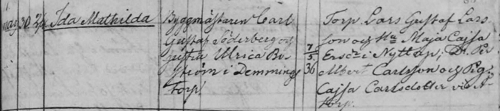 Ida Mathilda
Byggmästaren Carl
Gustaf Söderberg o
Justina Ulrica Bo
ström i Demmings
torp
7/5 36
Torp. Lars Gustaf Lars
son och H: Maja Cajsa
i Nyttap, Dr. P.
Albert Carlsson och Pig.
Cajsa Carlsdotter
torp.